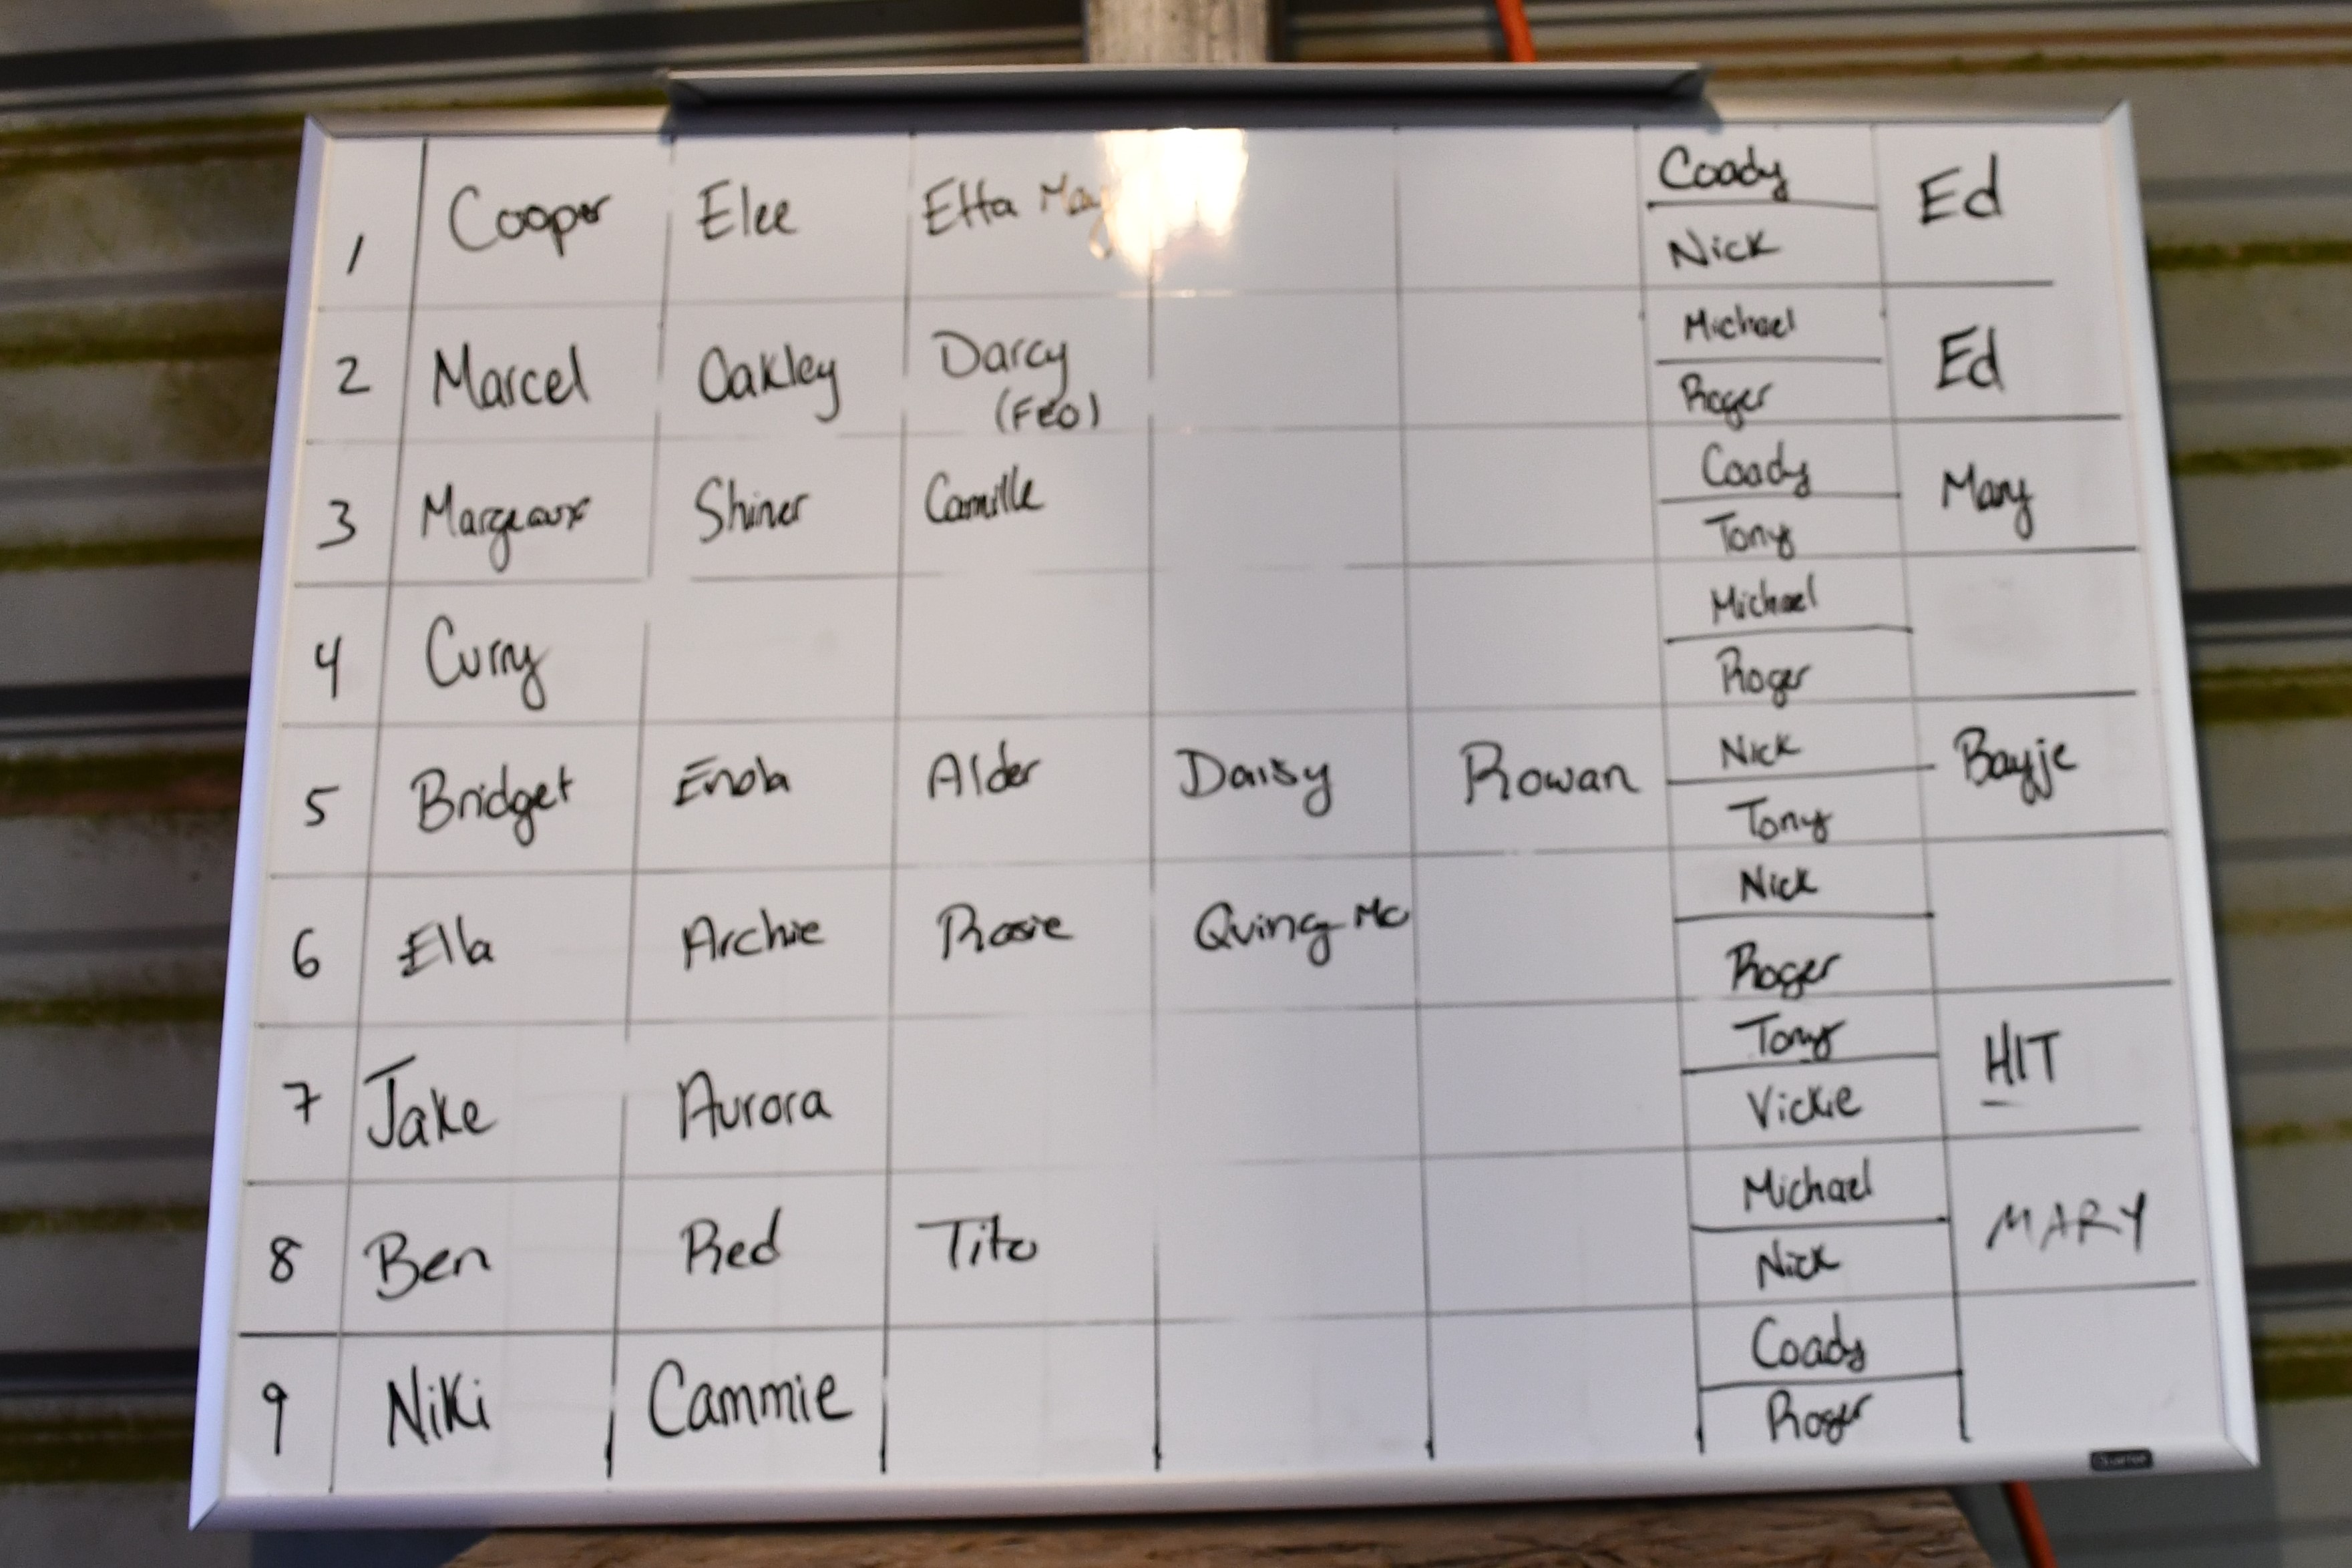 1 Cooper Elee Etta May Coady Ed
Nick
2 Marcel Oakley Darcy Michael Ed
(FEO) Roger
3 Margeaux Shiner Camille Coady Mary
Tony
4 Curry Michael
Roger
5 Bridget Enola Alder Daisy Rowan Nick Bayje
Tony
6 Ella Archie Rosie Quing Mo Nick
Roger
7 Jake Aurora Tony HIT
Vickie
8 Ben Red Tito Michael MARY
Nick
9 Niki Cammie Coady
Roger
Quartet